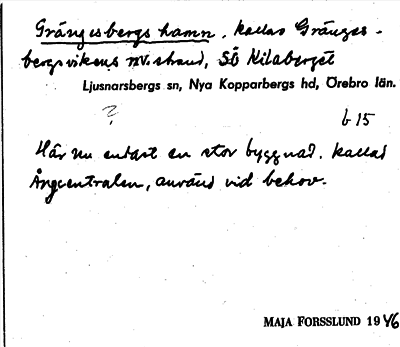 Grängesbergs hamn, kallas Gränges-
bergsvikens nv. strand, SÖ Kilaberget
Ljusnarsbergs sn, Nya Kopparbergs hd, Örebro län.
? b 15
Här nu endast en stor byggnad, kallad
Ångcentralen, använd vid behov.
MAJA FORSSLUND 1946